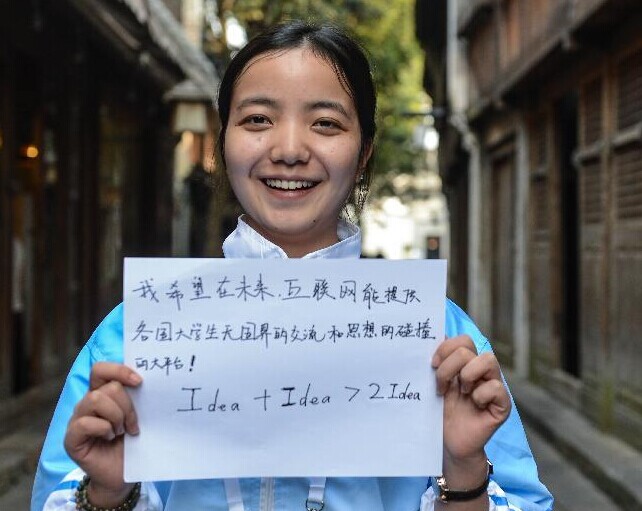 我希望在未来，互联网能提供
各国大学生无国界的交流和思想的碰撞
的大平台！
Idea + Idea > 2Idea